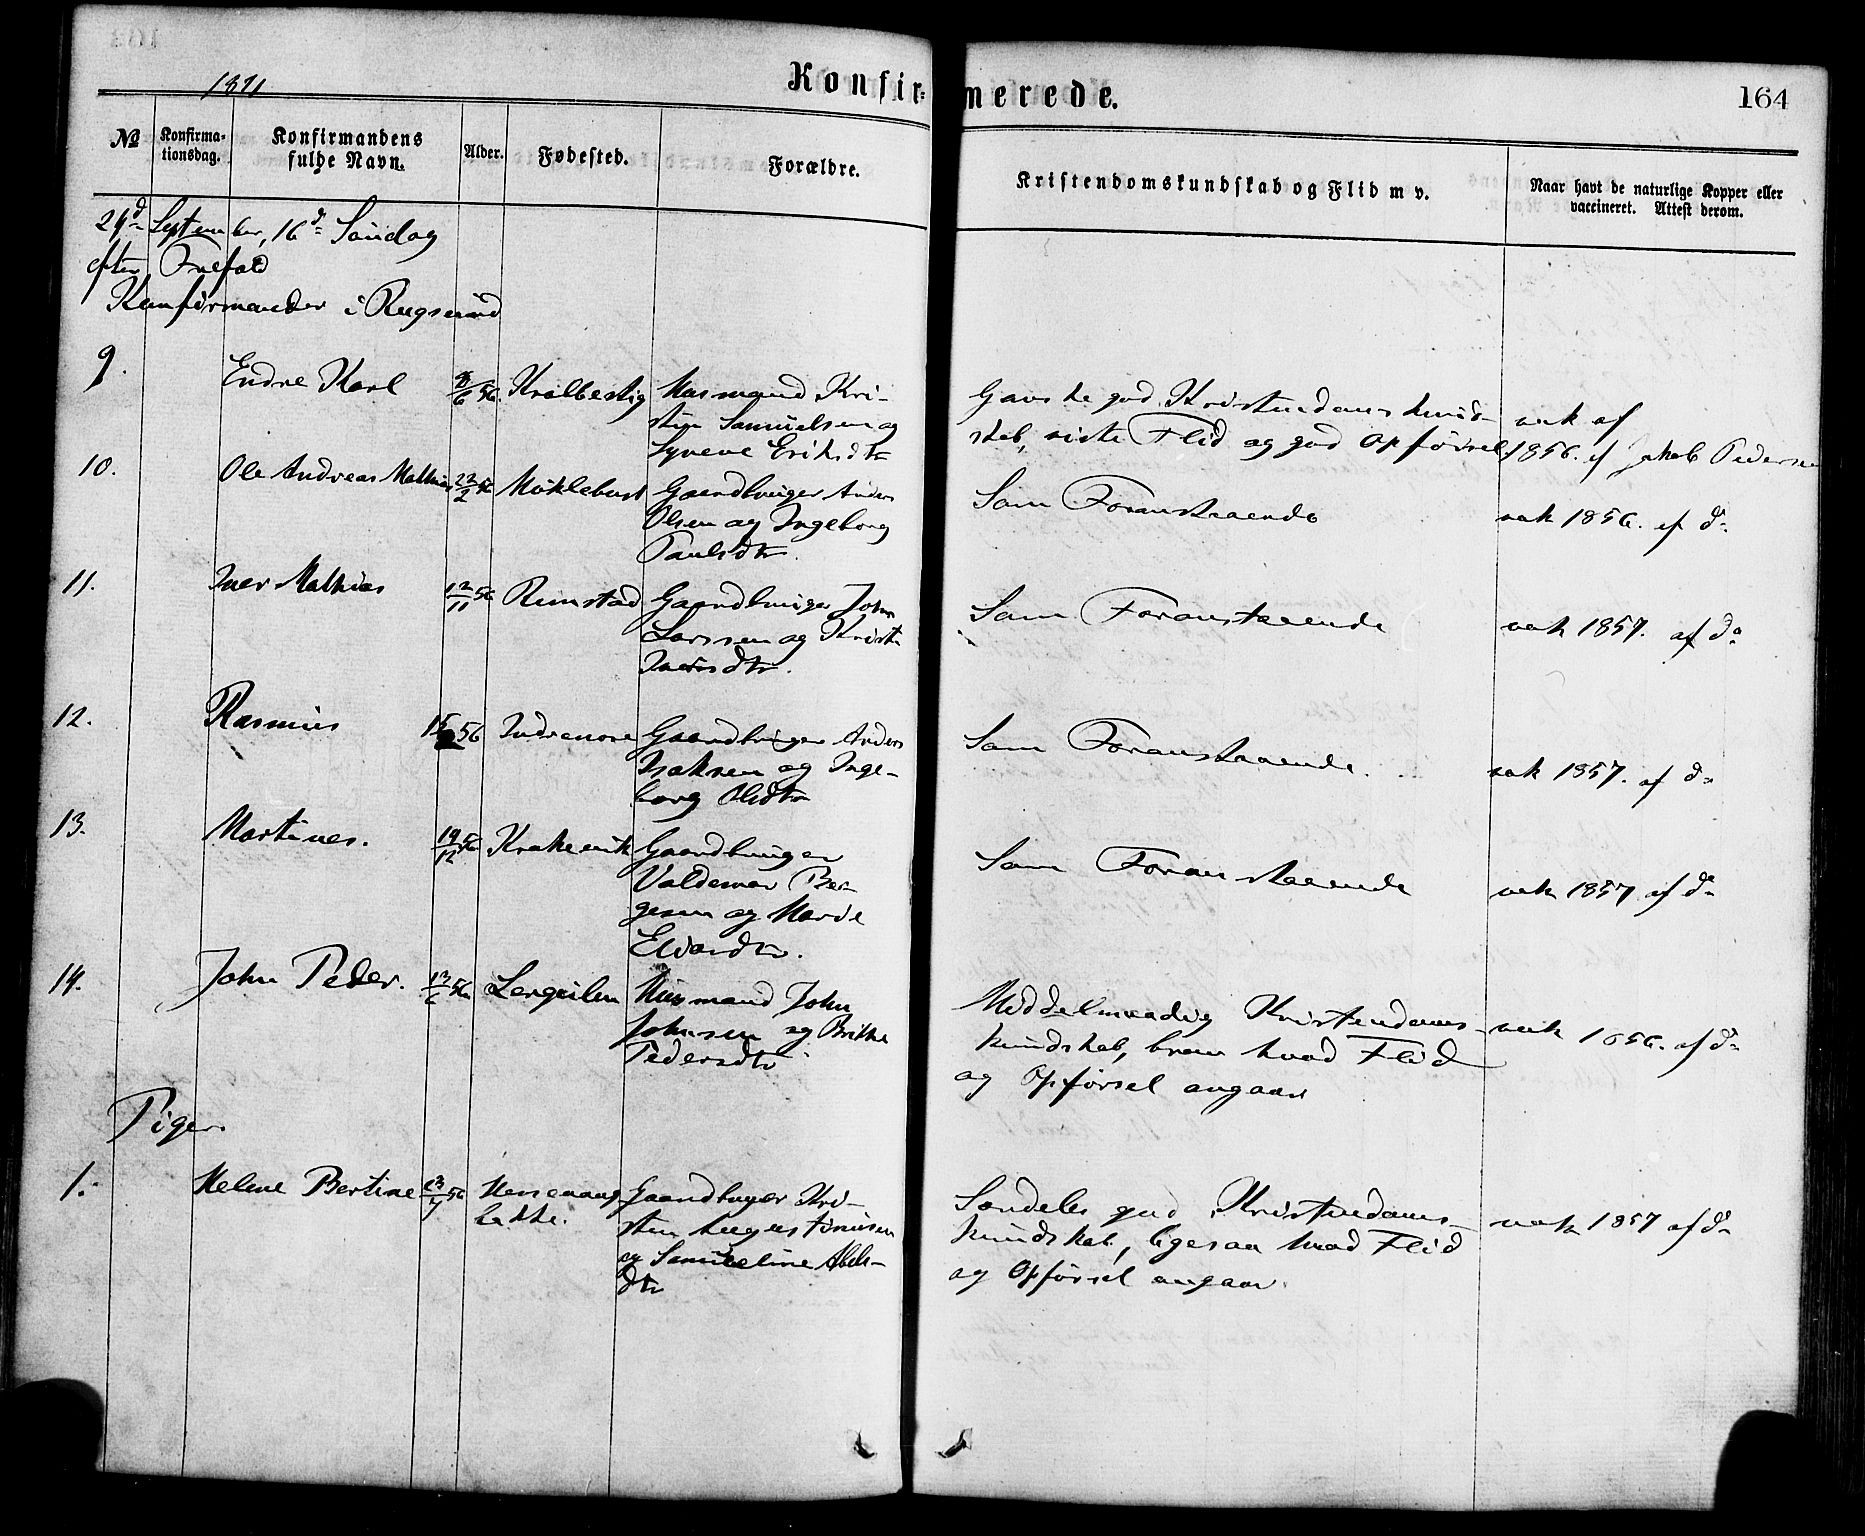 1871
Konfirmerede.
164
№
Konfirmationsdag.
Konfirmandens fulde Navn.
Alder.
Fødested.
Forældre.
Kristendomskundskab og Flid m v.
Naar havt de naturlige Kopper eller vaccineret. Attest derom.
24d September, 16d Søndag
efter Trefold
Konfirmander i Rugsund
9. Endre Karl 56 Husmand Kri-
sten Samuelsen og
Eriksdtr
Ganske god Kristendomskund-
skab, Flid og god Opførsel.
vak af
1856. af Jakob Pedersen
10. Ole Andreas Mathias 22/2 56 Myklebust Gaardbruger Anders
Olsen og Ingeborg
Paulsdtr.
Som Foranstaaende
vak 1856. af do
11. Iver Mathias 12/11 56 Rimstad Gaardbruger John
Larssen og Krist.
Iversdtr.
Som Foranstaaende
vak 1857. af do
12. Rasmus 56 Indrenore Gaardbruger Anders
Isaksen og Inge-
borg Olsdtr
Som Foranstaaende.
vak 1857. af do
13. Martines. 19/12 56 Krakevik Gaardbruger
Valdemar Bør-
gesen og Marie
Som Foranstaaende
vak 1857 af do
14. John Peder. 13/6 56 Husmand John
Johnsen og Brithe
Pedersdtr
Middelmaadig Kristendoms-
kundskab, brav hvad Flid
og Opførsel angaar
vak 1856. af do
Piger.
1. Helene Bertine 23/7 56
bakke.
Gaardbruger Kri-
sten Augustinusen
og Samueline Abels-
dtr
Særdeles god Kristendoms-
kundskab, ligesaa hvad Flid
og Opførsel angaar.
vak 1857 af do